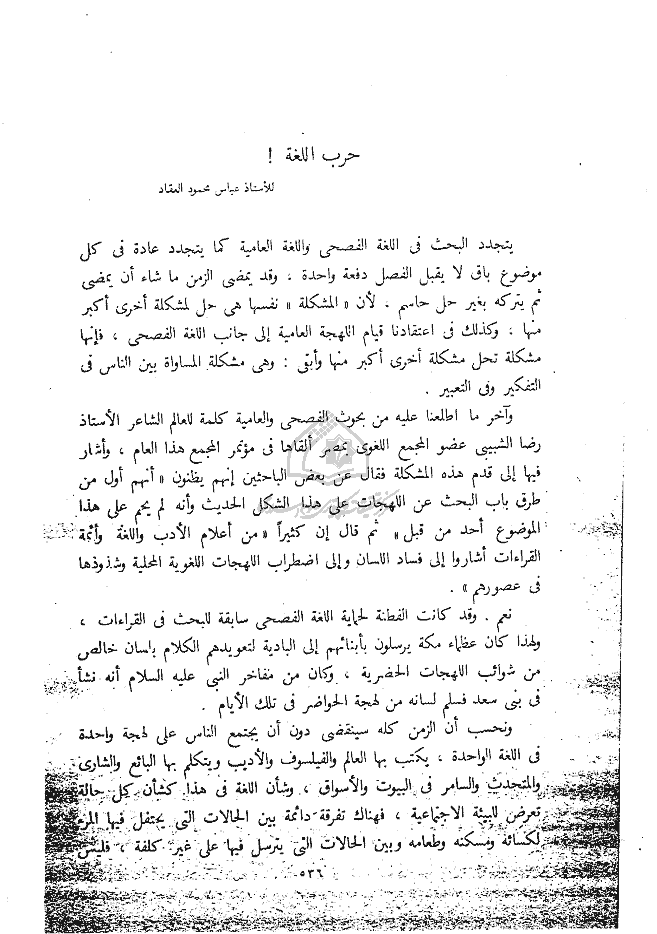 حرب اللغة !
للأستاذ عباس محمود العقاد
يتجدد البحث فى اللغة الفصحى واللغة العامية كما يتجدد عادة فى كل
موضوع باق لا يقبل الفصل دفعة واحدة ، وقد يمضى الزمن ما شاء أن يمضى
ثم يتركه بغير حل حاسم . لأن « المشكلة » نفسها هى حل لمشكلة أخرى أكبر
منها ، وكذلك فى اعتقادنا قيام اللهجة العامية إلى جانب اللغة الفصحى ، فإنها
مشكلة تحل مشكلة أخرى أكبر منها وأبقى : وهى مشكلة المساواة بين الناس فى
التفكير وفى التعبير .
وآخر ما اطلعنا عليه من بحوث الفصحى والعامية كلمة للعالم الشاعر الأستاذ
رضا الشبيبى عضو المجمع اللغوى بمصر ألقاها فى مؤتمر المجمع هذا العام ، وأشار
فيها إلى قدم هذه المشكلة فقال عن بعض الباحثين إنهم يظنون « أنهم أول من
طرق باب البحث عن اللهجات على هذا الشكل الحديث وأنه لم يحم على هذا
الموضوع أحد من قبل » ثم قال إن كثيراً « من أعلام الأدب واللغة وأئمة
القراءات أشاروا إلى فساد اللسان وإلى اضطراب اللهجات اللغوية المحلية وشذوذها
فى عصورهم » .
نعم . وقد كانت الفطنة لحماية اللغة الفصحى سابقة للبحث فى القراءات ،
ولهذا كان عظماء مكة يرسلون بأبنائهم إلى البادية لتعويدهم الكلام بلسان خالص
من شوائب اللهجات الحضرية ، وكان من مفاخر النبى عليه السلام أنه نشأ
فى بنى سعد فسلم لسانه من لهجة الحواضر فى تلك الأيام .
ونحسب أن الزمن كله سينقضى دون أن يجتمع الناس على لهجة واحدة
فى اللغة الواحدة ، يكتب بها العالم والفيلسوف والأديب ويتكلم بها البائع والشارى
والمتحدث والسامر فى البيوت والأسواق ، وشأن اللغة فى هذا كشأن كل حالة
تعرض للبيئة الاجتماعية ، فهناك تفرقة دائمة بين الحالات التى يحتفل فيها المرء
لكسائه ومسكنه وطعامه وبين الحالات التى يترسل فيها على غير كلفة ، فليس
٥٣٦